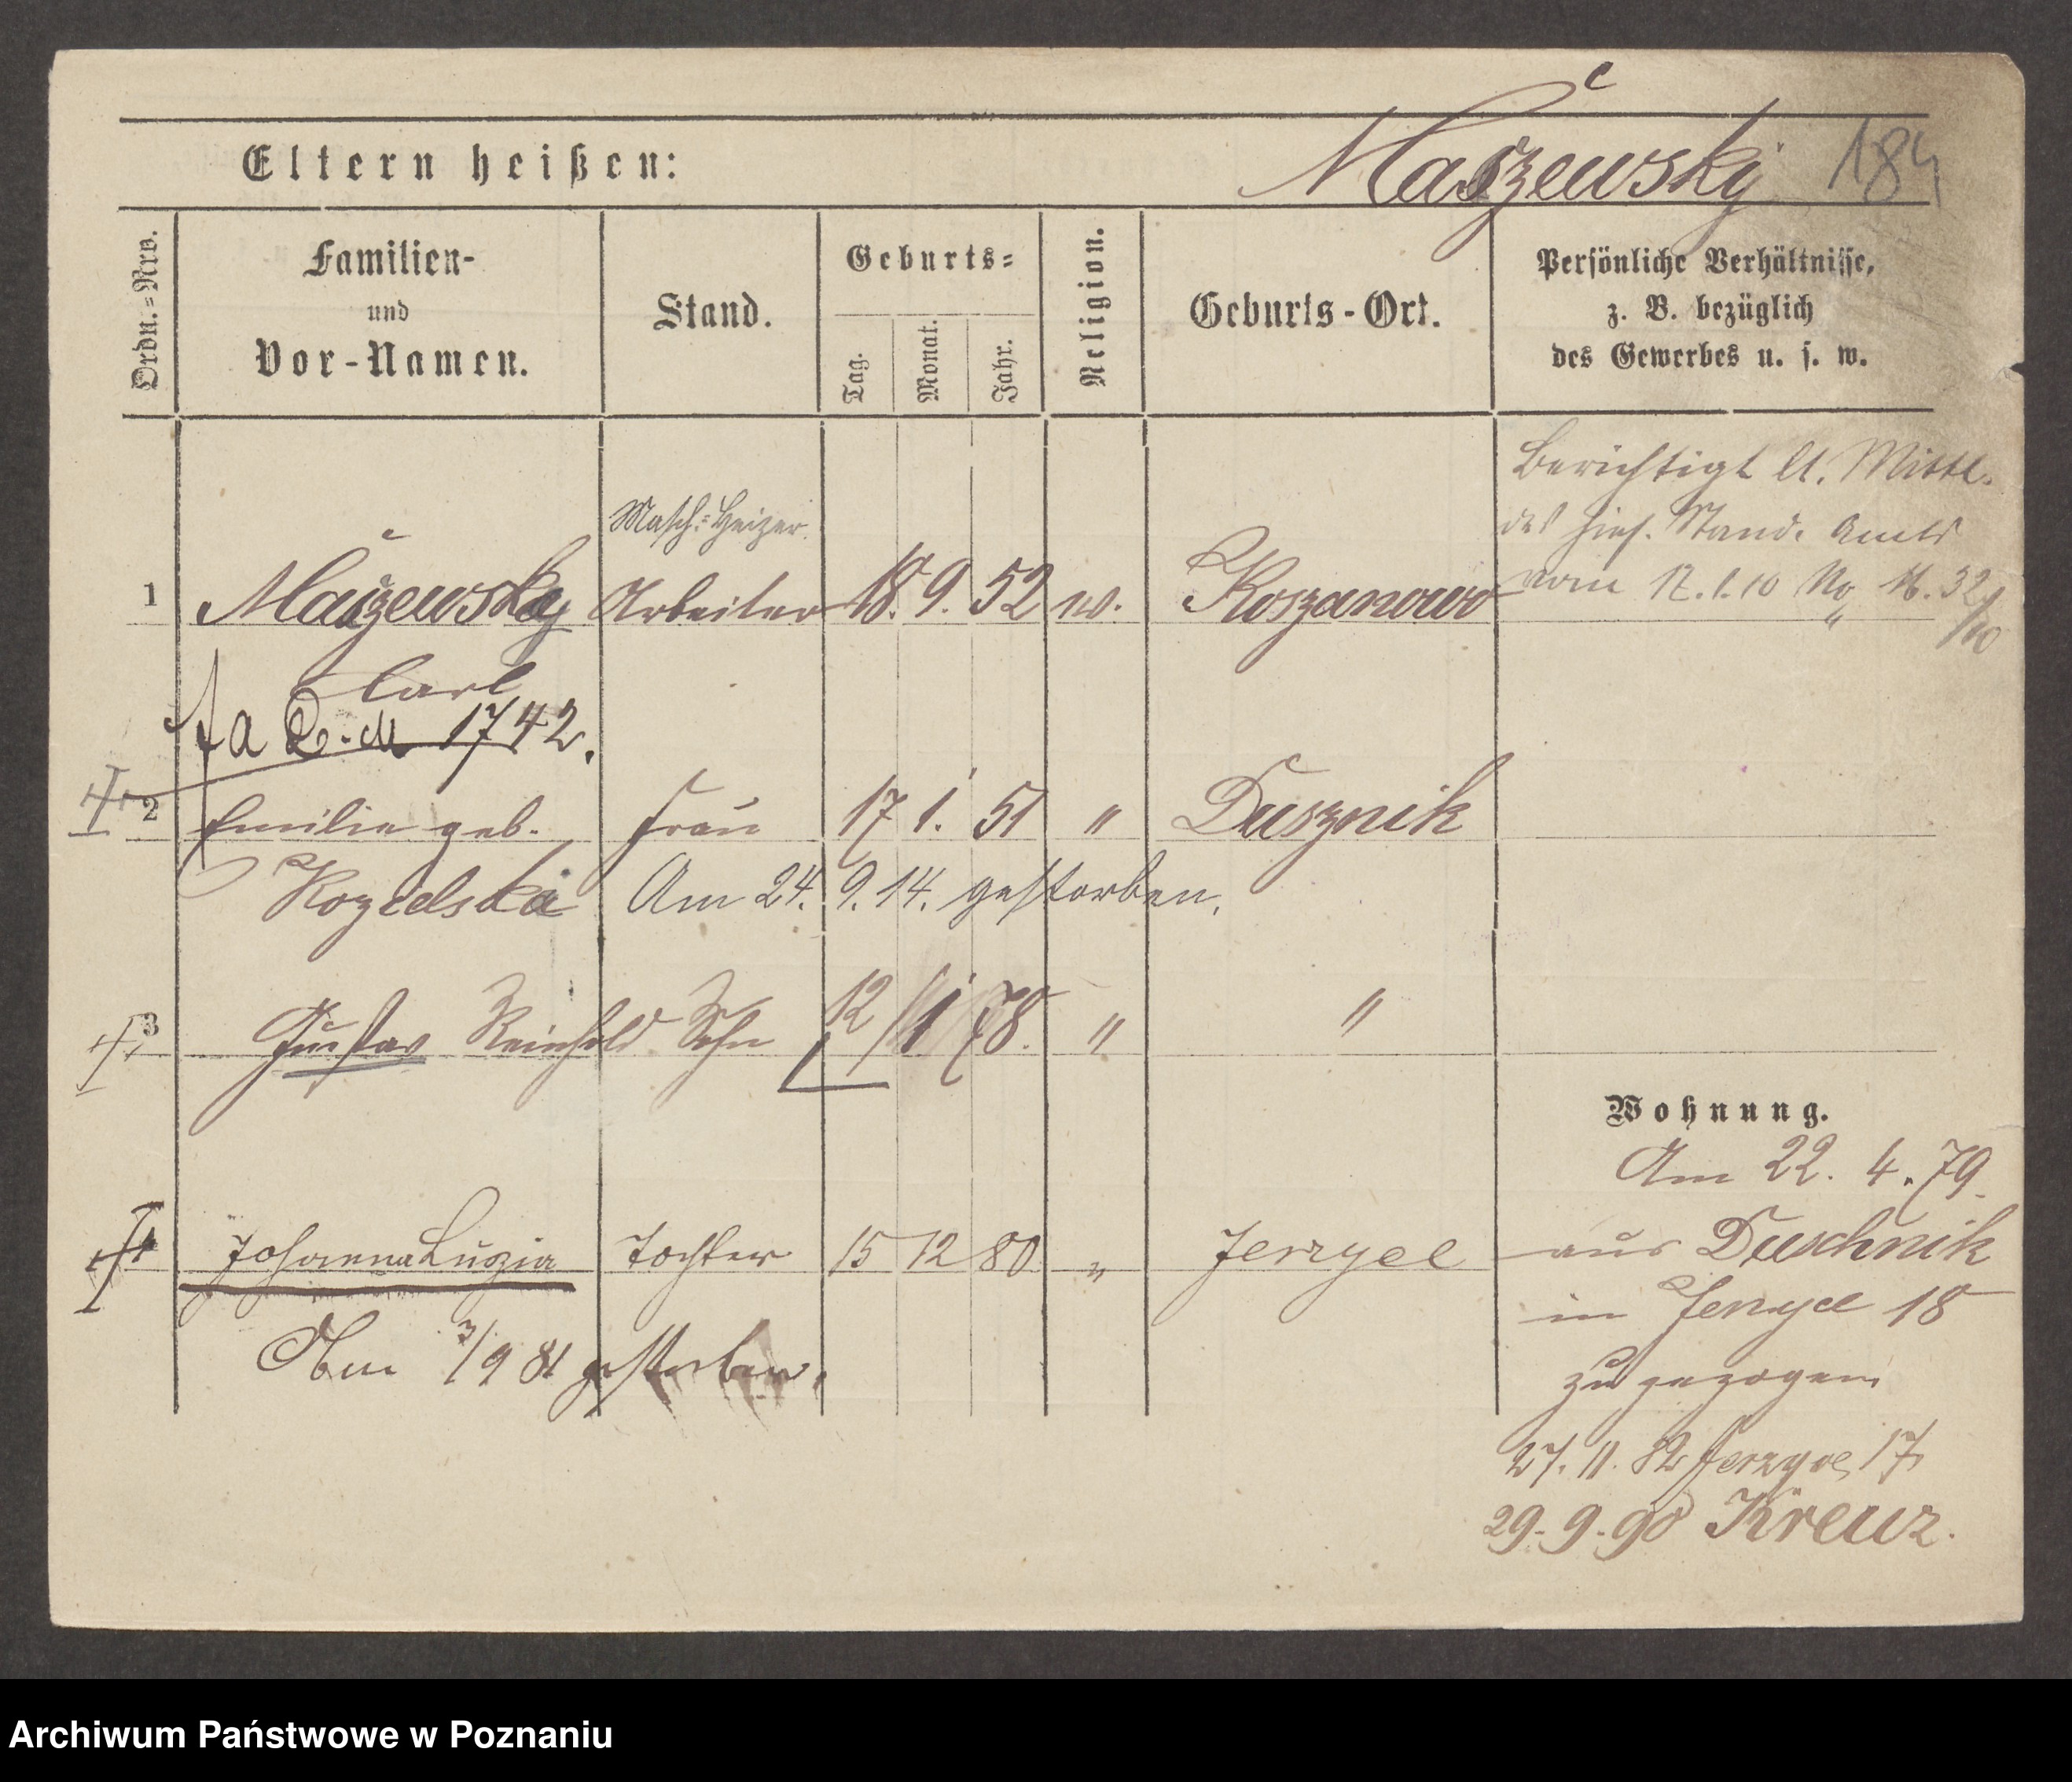 Eltern heißen: Maczewsky 184
Ordn.=Nro. Familien- und Vor-Namen. Stand. Geburts= Tag. Monat. Jahr. Religion. Geburts-Ort. Persönliche Verhältnisse, z. B. bezüglich des Gewerbes u. s. w.
Berichtigt lt. Mittl.
des hies. Stand. Amts
vom 17.1.10 No
Masch.=Heizer.
1 Maczewsky Arbeiter 18. 9. 52 w. Koszanowo
Carl
1742.
2 Emilie geb. Frau 17 1. 51 " Dusznik
Am 24. 9. 14. gestorben.
3 Gustav Reinhold Sohn 12 1 78. " "
Wohnung.
Am 22. 4. 79.
4 Johanna Luzia Tochter 15 12 80 " Jerzyce
aus Duschnik
in Jerzyce 18
zugezogen
Am 3/9 81 gestorben.
27. 11. 82 Jerzyce 17
29. 9. 90 Kreuz.
Archiwum Państwowe w Poznaniu